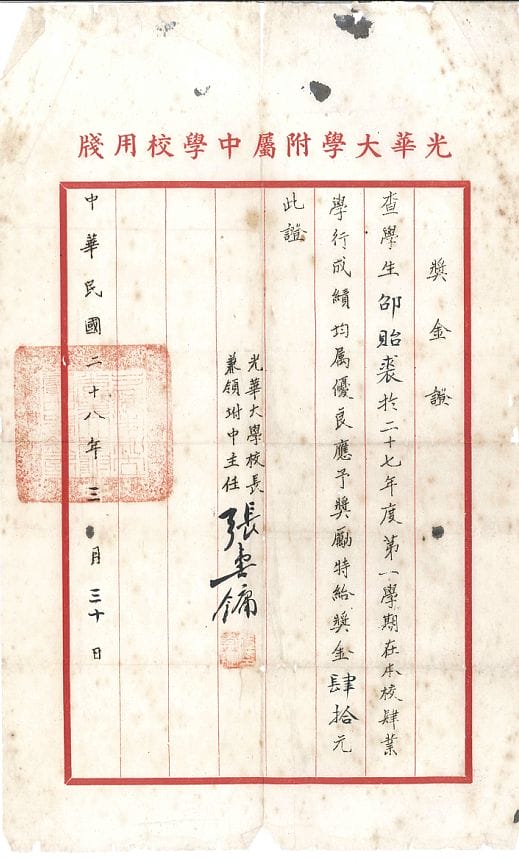 光華大學附屬中學校用牋
獎金證
查學生邵貽裘於二十七年度第一學期在本校肄業
學行成績均属優良應予獎勵特給獎金肆拾元
此證
光華大學校長
兼領附中主任
張壽鏞
中華民國二十八年三月三十日